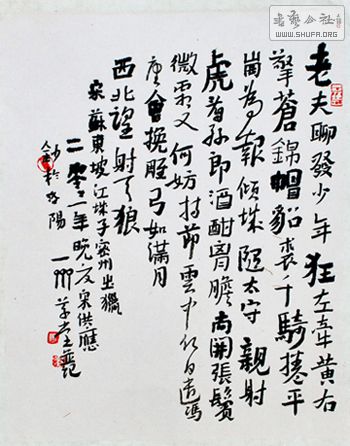 书艺公社
WWW.SHUFA.ORG
老夫聊發少年狂左牽黄右
擎蒼錦帽貂裘千騎捲平
崗為報傾城隨太守親射
虎看孫郎酒酣胸膽尚開張鬢
微霜又何妨持節雲中何日遣馮
唐會挽雕弓如滿月
西北望射天狼
宋蘇東坡江城子密州出獵
二零一一年晚夏宋供應
於洛陽 草堂